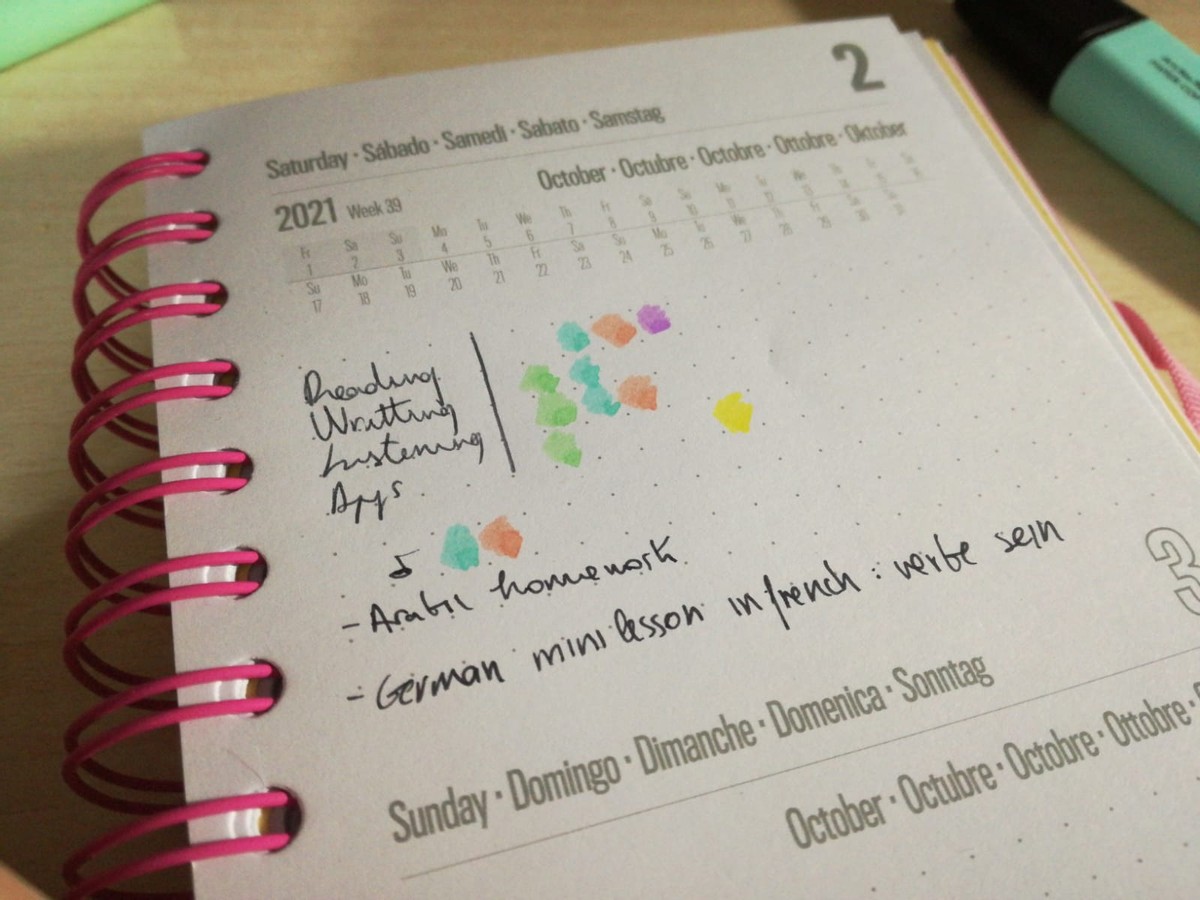 2
Saturday · Sábado · Samedi · Sabato · Samstag
October · Octubre · Octobre · Ottobre · Oktober
2021 Week 39
Fr Sa Su Mo Tu We Th Fr Sa Su Mo Tu We
1 2 3 4 5 6 7 8 9 10 11 12 13
Su Mo Tu We Th Fr Sa Su Mo Tu We Th Fr Sa
17 18 19 20 21 22 23 24 25 26 27 28 29 30
Reading
Writting
Listening
Apps
5
- Arabic homework
- German mini lesson in french : verbe sein
3
Sunday · Domingo · Dimanche · Domenica · Sonntag
October · Octubre · Octobre · Ottobre ·